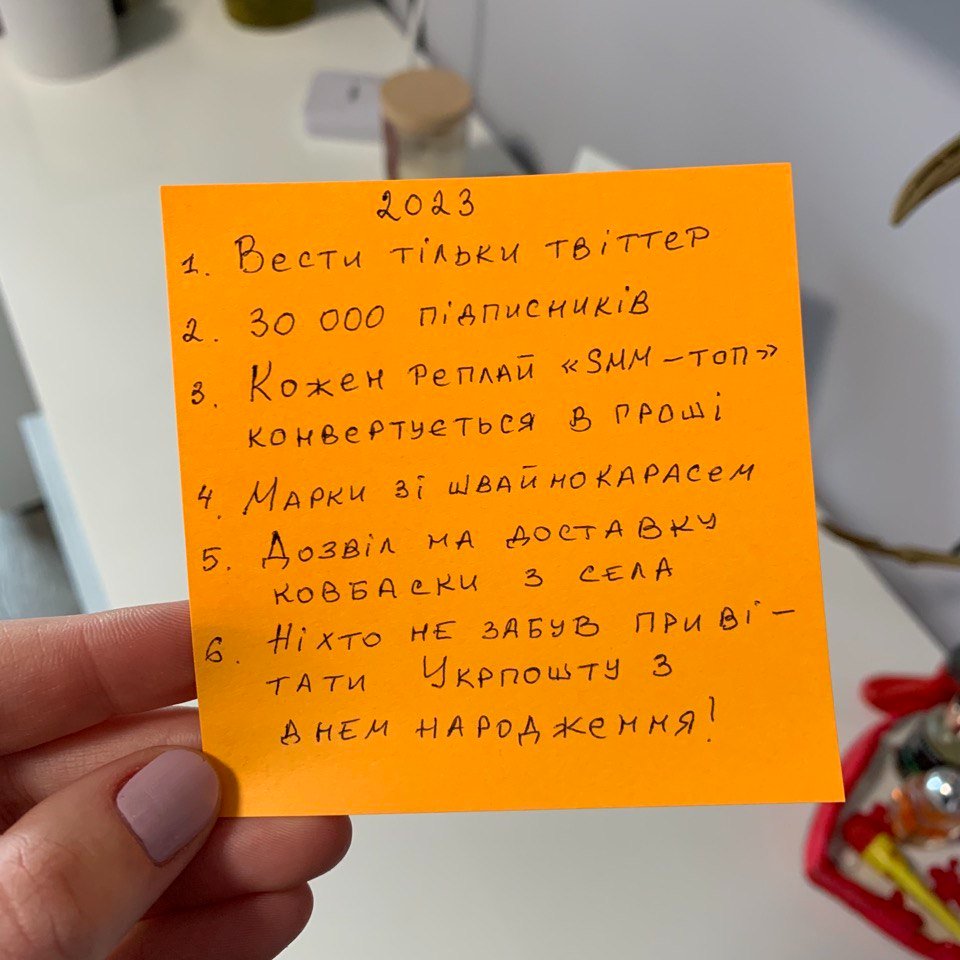 2023
1. Вести тільки твіттер
2. 30 000 підписників
3. Кожен реплай «SMM – топ»
конвертується в гроші
4. Марки зі швайнокарасем
5. Дозвіл на доставку
ковбаски з села
6. Ніхто не забув приві-
тати Укрпошту з
днем народження!